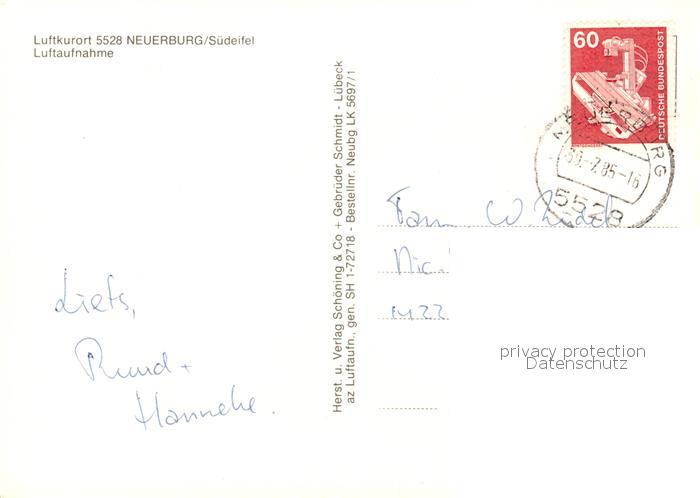 Luftkurort 5528 NEUERBURG/Südeifel
Luftaufnahme
Liefs,
Ruud +
Hanneke.
Herst. u. Verlag Schöning & Co + Gebrüder Schmidt - Lübeck
az Luftaufn., gen. SH 1-72718 - Bestellnr. Neubg LK 5697/1
60
DEUTSCHE BUNDESPOST
NEUERBURG
-7.85-16
5528
Fam W.
1422
privacy protection
Datenschutz